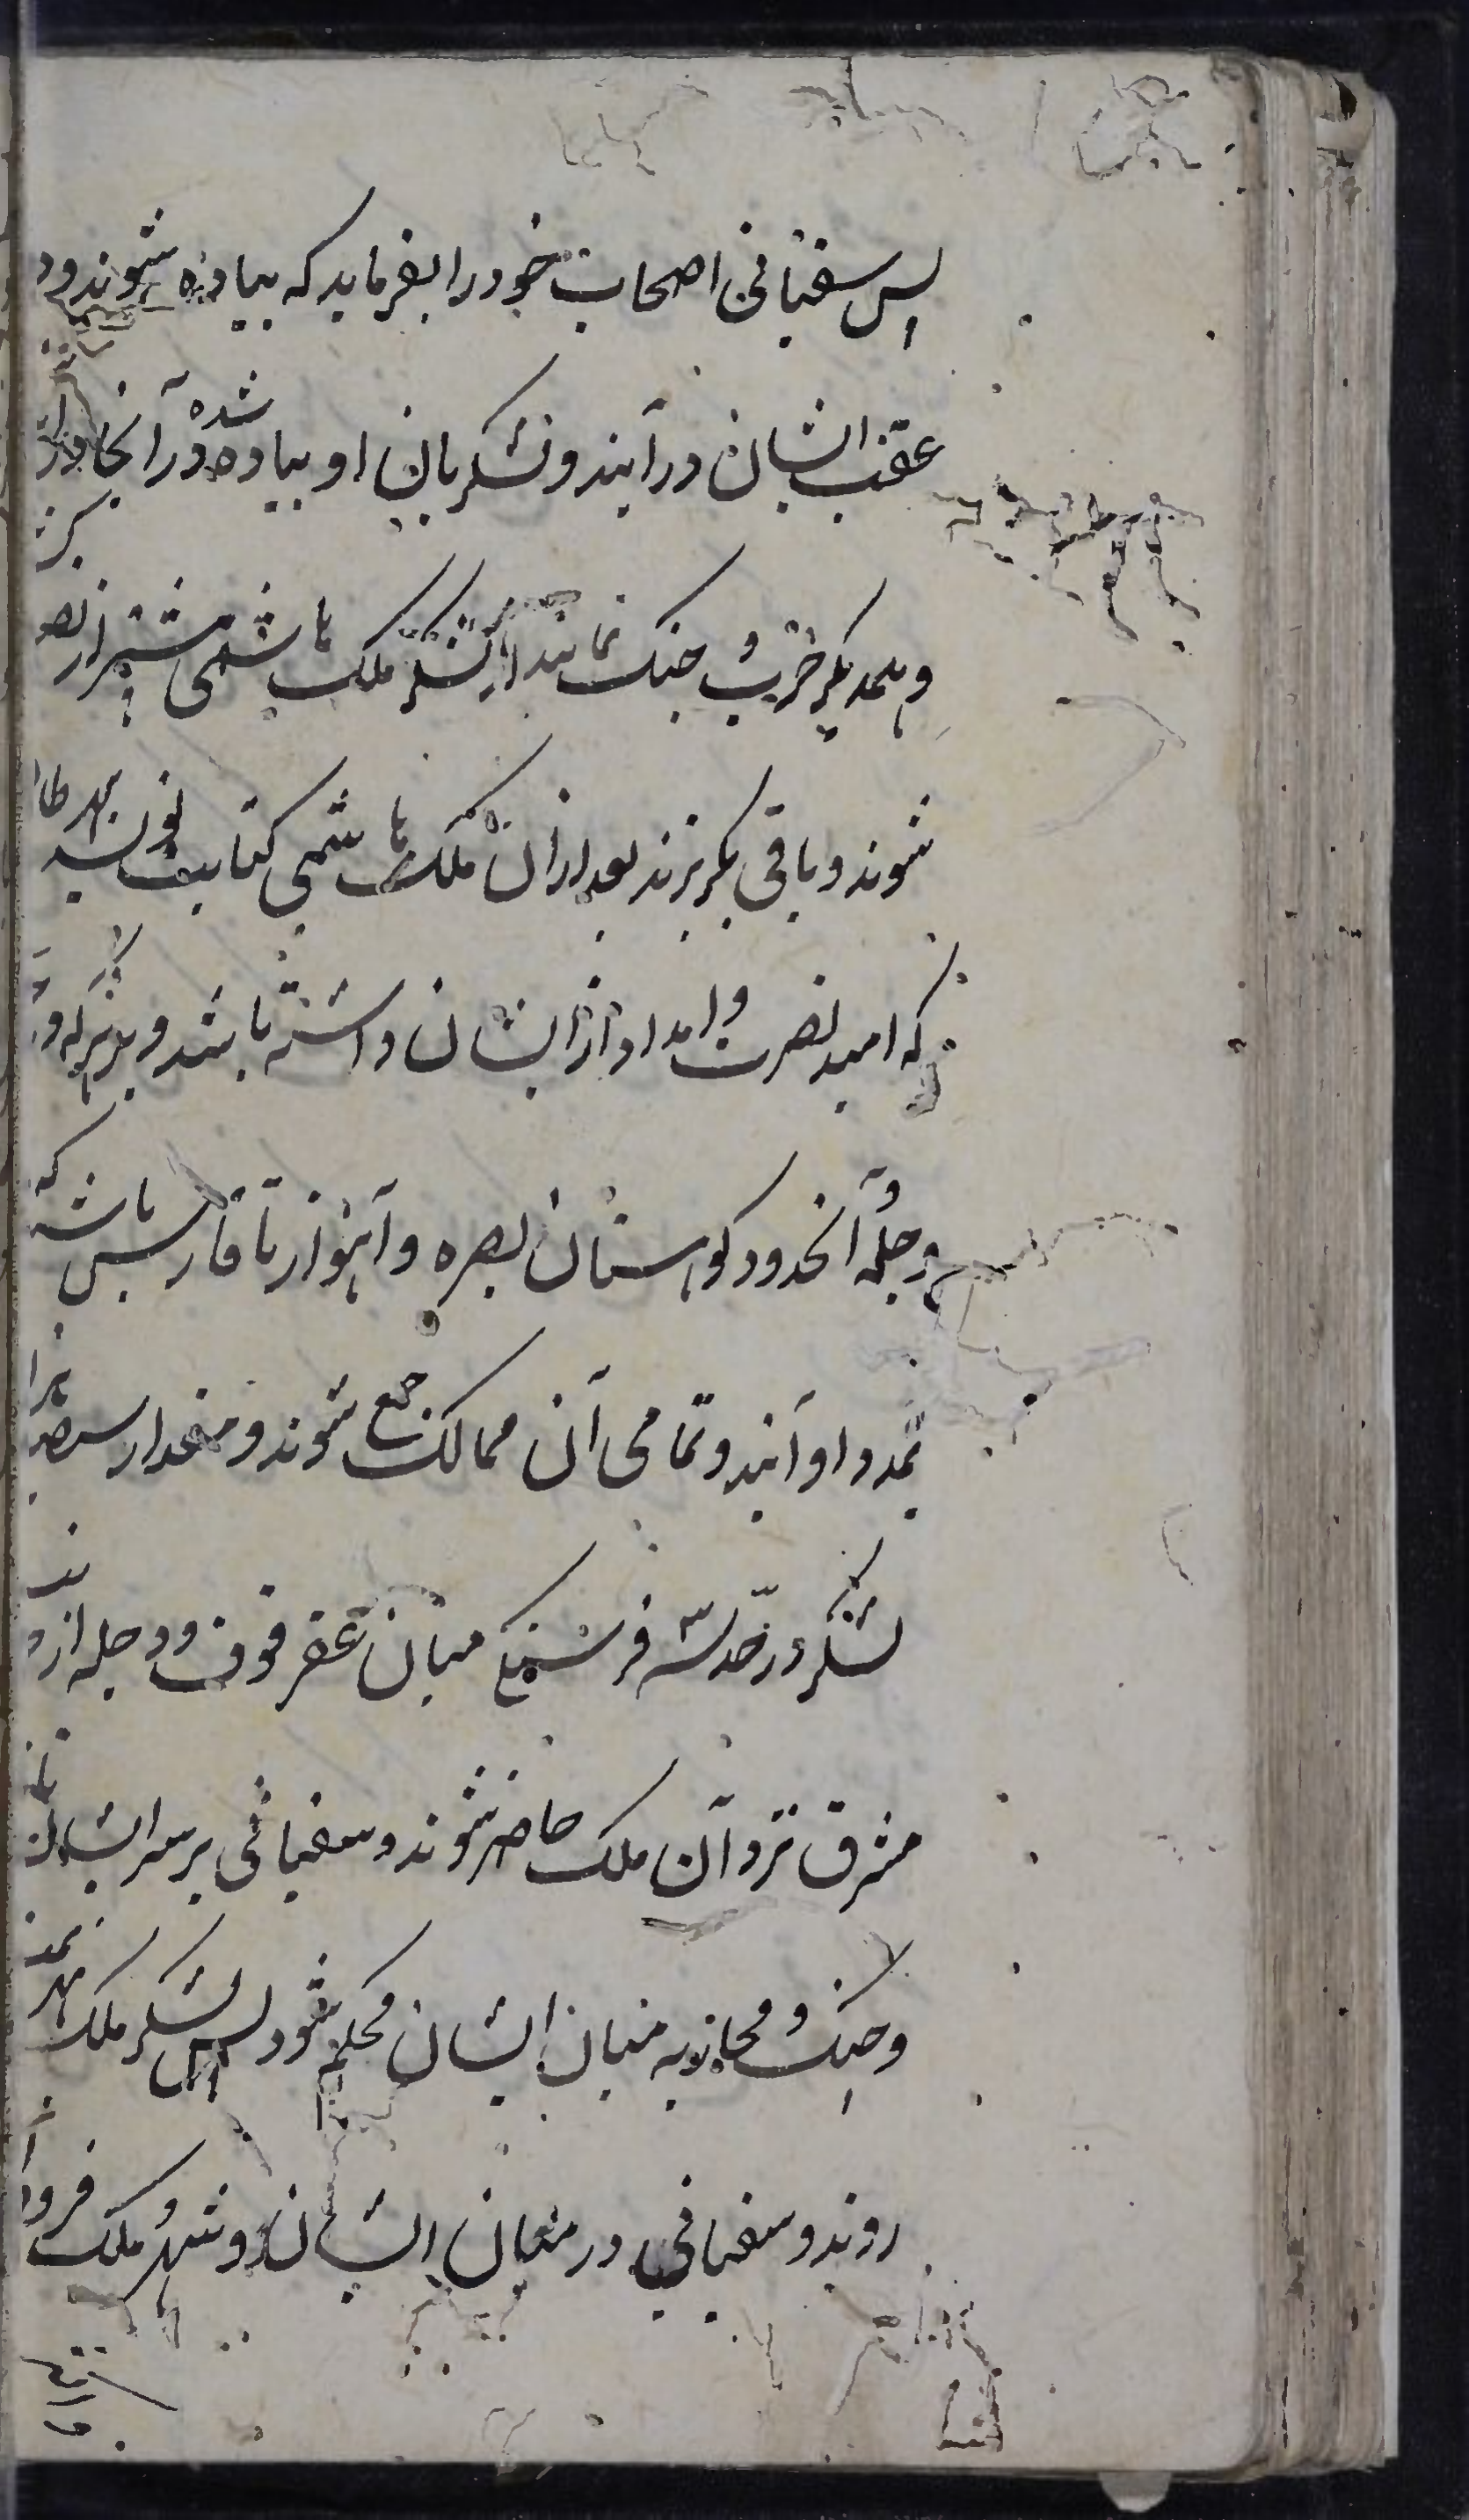 پس سفیانی اصحاب خود را بفرماید که پیاده شوند و در
عقب ایشان درآیند و لشکریان او پیاده شده در آنجا در
و یکدیگر ضرب و جنک نمایند از لشکر ملک هاشمی بیشتر از نصف
شوند و باقی بگریزند بعد از ان ملک هاشمی کتابت نویسد بهر طا
که امید نصرت و امداد از ایشان داشته باشد و بدیگر
و جمله آنحدود کوهستان بصره و آهواز تا فارس باشد که
بمدد او آیند و تمامی آن ممالک جمع شوند و مقدار سیصد هزار
لشکر در حد سه فرسنکی میان عقرقوف و دجله از
مشرق نزد آن ملک حاضر شوند و سفیانی بر سر ایشان
و جنک و محاربه میان ایشان محکم شود پس لشکر ملک بهز
روند و سفیانی در میان ایشان و شهر ملک فرود